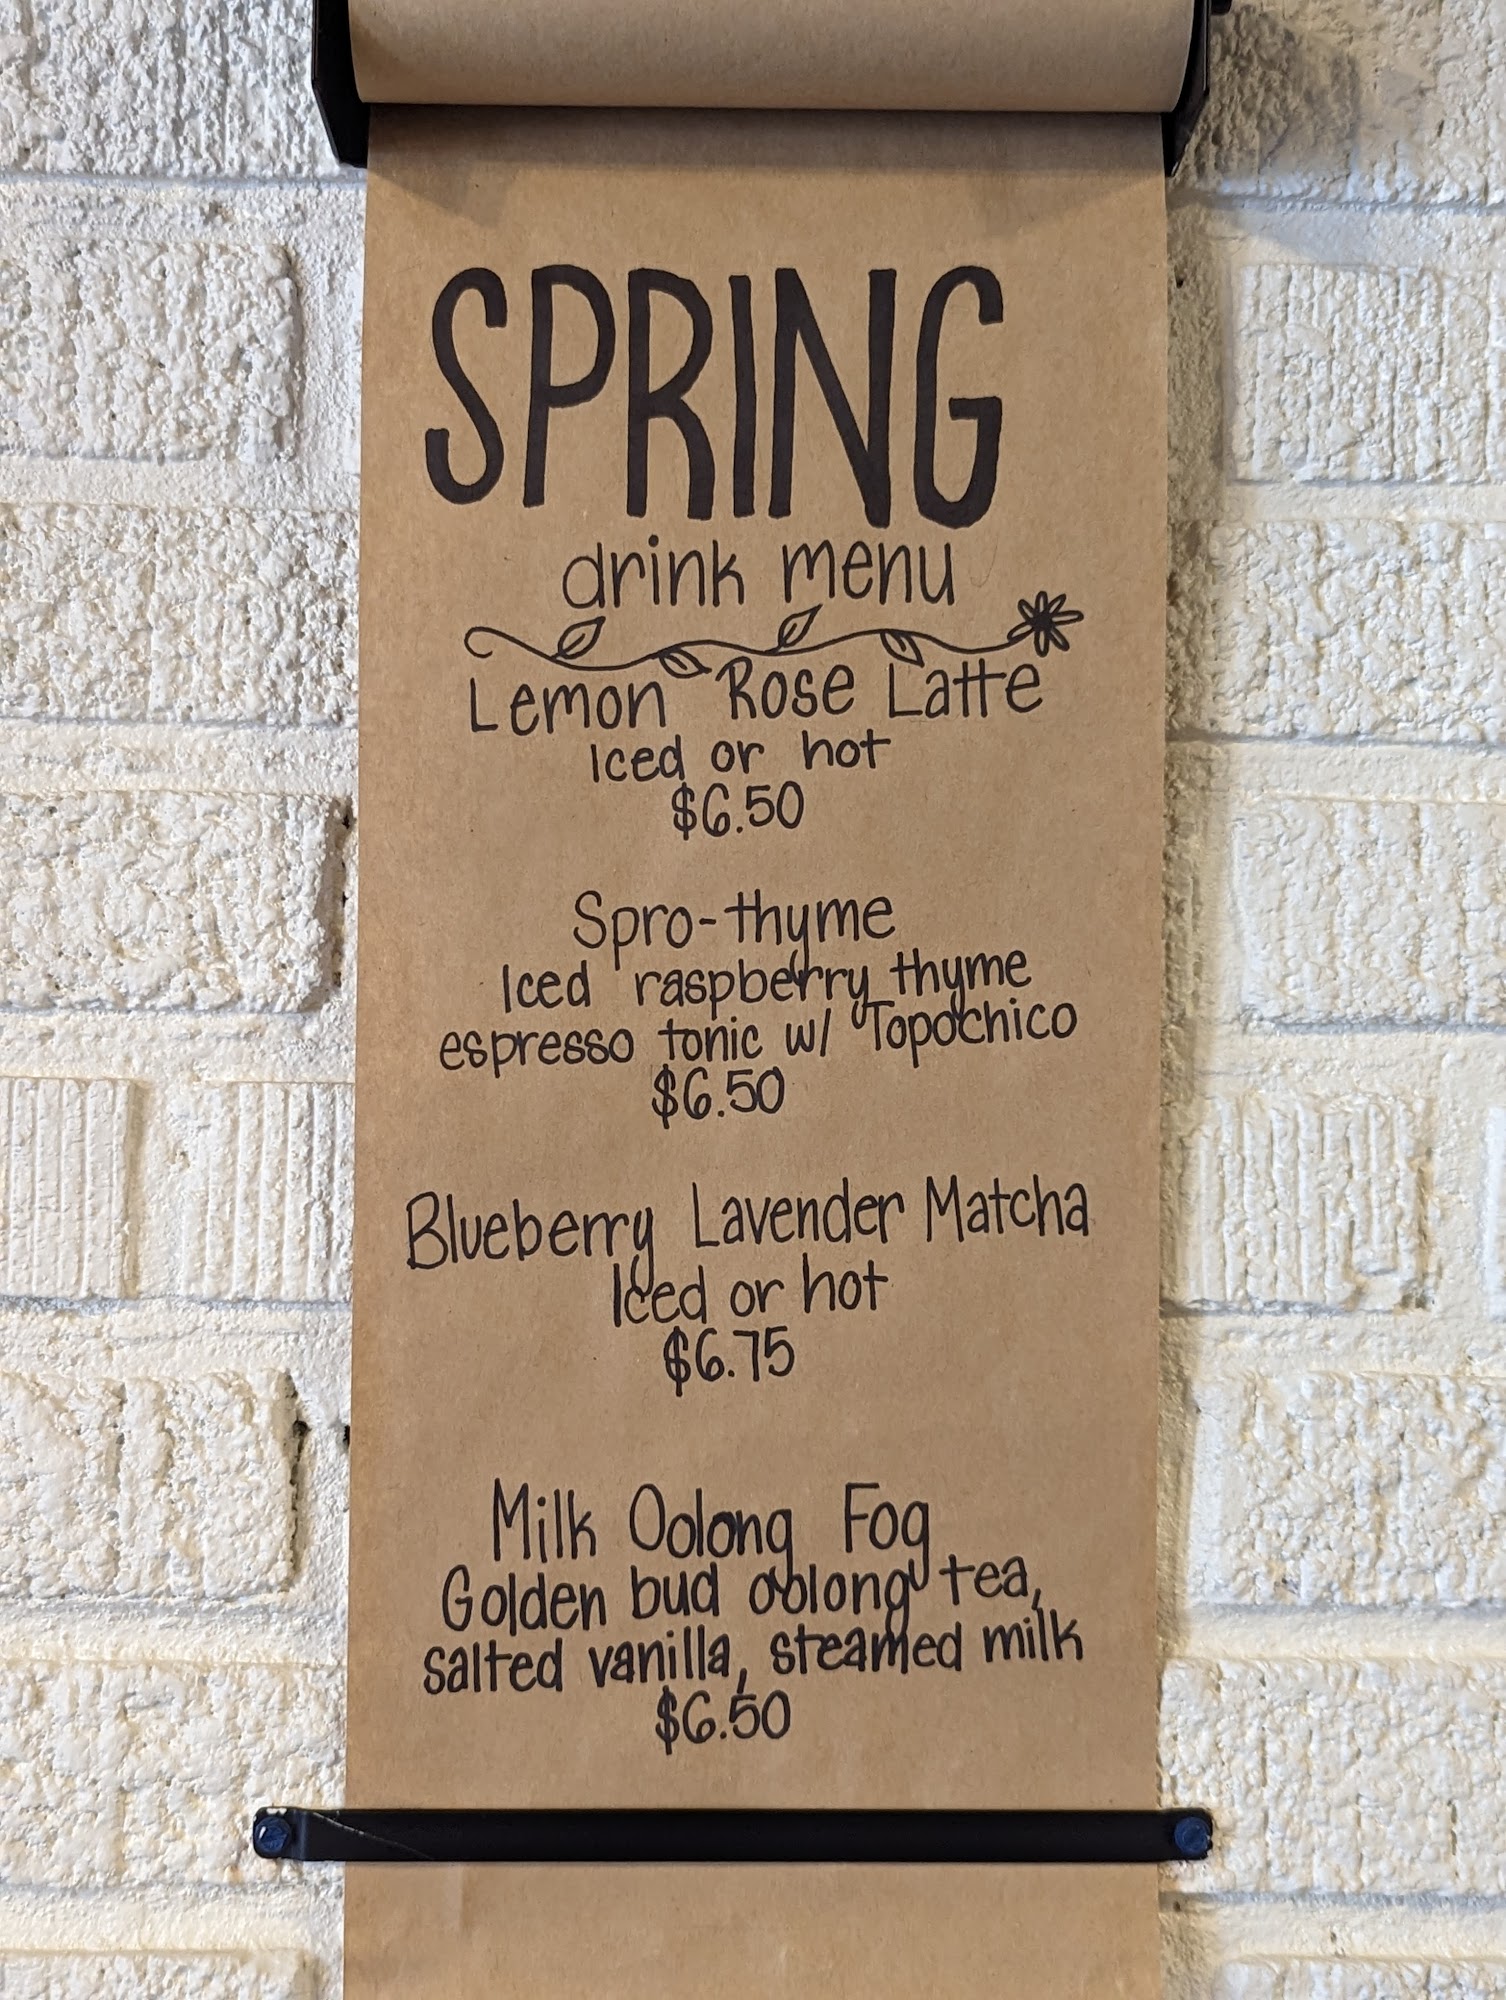 SPRING
drink menu
Lemon Rose Latte
Iced or hot
$6.50
Spro-thyme
Iced raspberry thyme
espresso tonic w/ Topochico
$6.50
Blueberry Lavender Matcha
Iced or hot
$6.75
Milk Oolong Fog
Golden bud oolong tea,
salted vanilla, steamed milk
$6.50